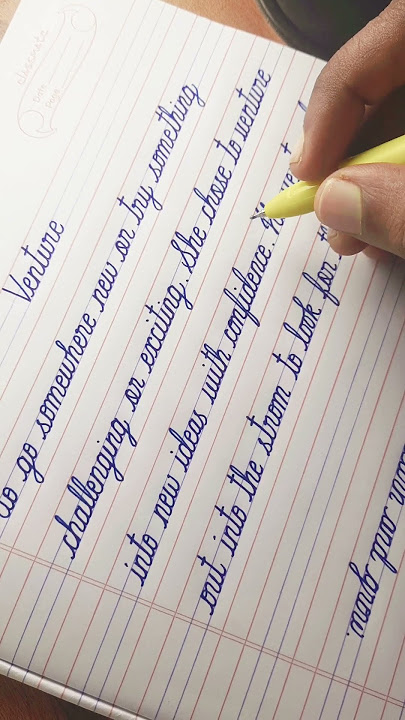 classmate
Date
Page
Venture
to go somewhere new or try something
challenging or exciting. She chose to venture
into new ideas with confidence.
out into the strom to look for
and grow.